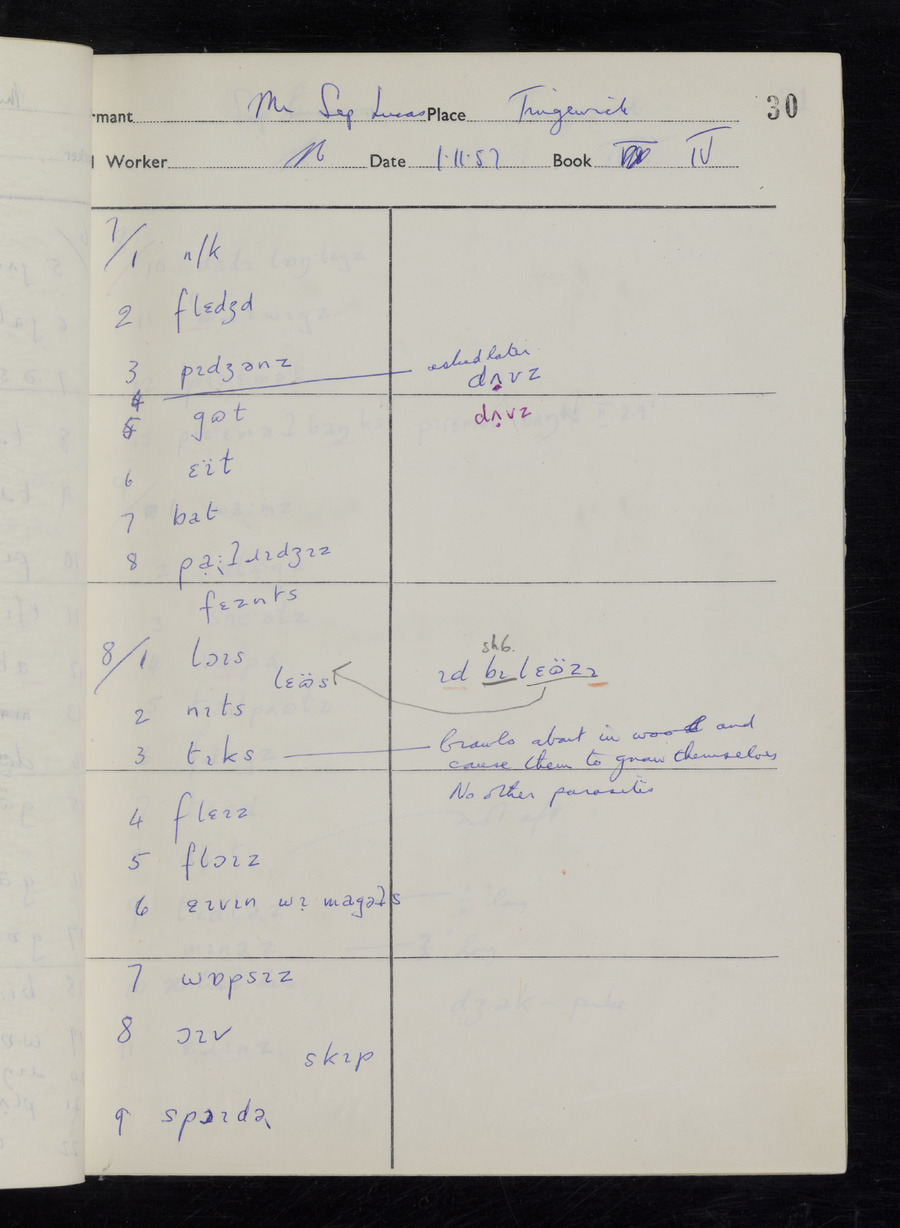 rmant Mr Sep Lucas Place Tingewick 30
Worker Date 1.11.57 Book IV
7/1 n/k
2 flɛdʒd
3 pɪdʒənz asked later dʌ̣vz
4
5 gɒt dʌ̣vz
6 ɛït
7 bat
8 fɛznts
8/1 lɔɪs
lɛösɪ
sh6.
ɪd bɪ lɛözɪ
2 nɪts
3 tɪks Crawls about in wool and
cause them to gnaw themselves
No other parasites
4 flɛɪz
5 flɔɪz
6 ɛɪvɪn wɪ magəts
7 wɒpsɪz
8 ɔɪv
skɪp
9 spɔɪdə